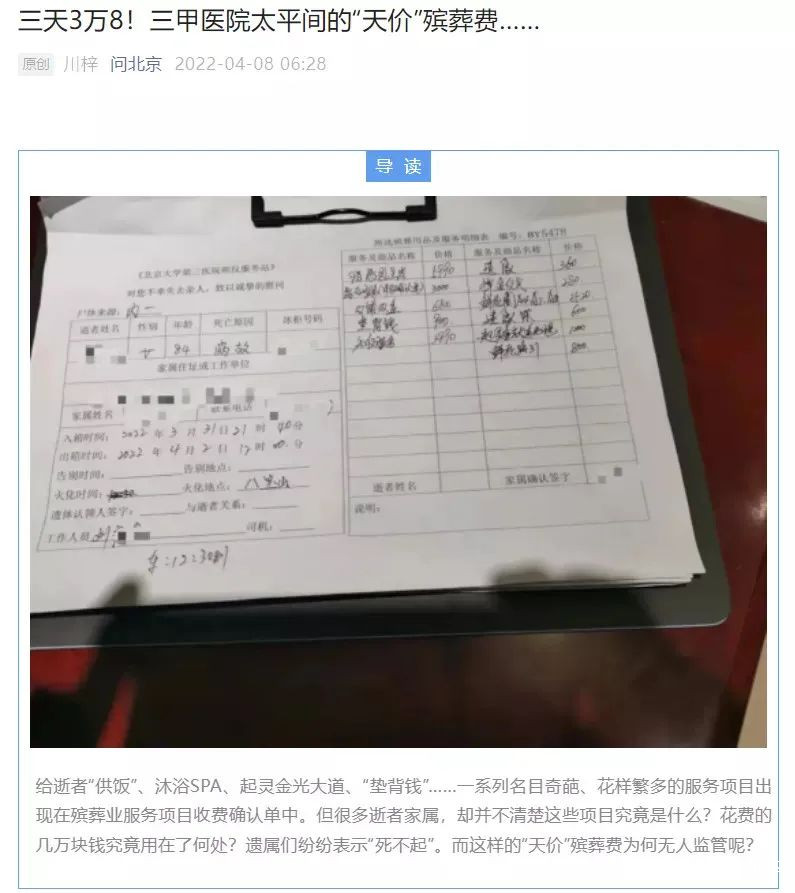 三天3万8！三甲医院太平间的“天价”殡葬费……
原创 川梓 问北京 2022-04-08 06:28
导 读
《北京大学第三医院殡仪服务站》
对您不幸失去亲人，致以诚挚的慰问
尸体来源：内一
逝者姓名 性别 年龄 死亡原因 冰柜号码
女 84 病故
家属住址或工作单位
家属姓名 联系电话
入箱时间：2022年3月31日21时40分
出箱时间：2022年4月2日12时00分
告别时间： 告别地点：
火化时间： 火化地点：八宝山
遗体认领人签字： 与逝者关系：
工作人员 司机：
车：12:30到
所选殡葬用品及服务明细表 编号：BY5478
服务及商品名称 价格 服务及商品名称 价格
1990
360
3000
280
600
1000
800
逝者姓名 家属确认签字
说明：
给逝者“供饭”、沐浴SPA、起灵金光大道、“垫背钱”……一系列名目奇葩、花样繁多的服务项目出
现在殡葬业服务项目收费确认单中。但很多逝者家属，却并不清楚这些项目究竟是什么？花费的
几万块钱究竟用在了何处？遗属们纷纷表示“死不起”。而这样的“天价”殡葬费为何无人监管呢？